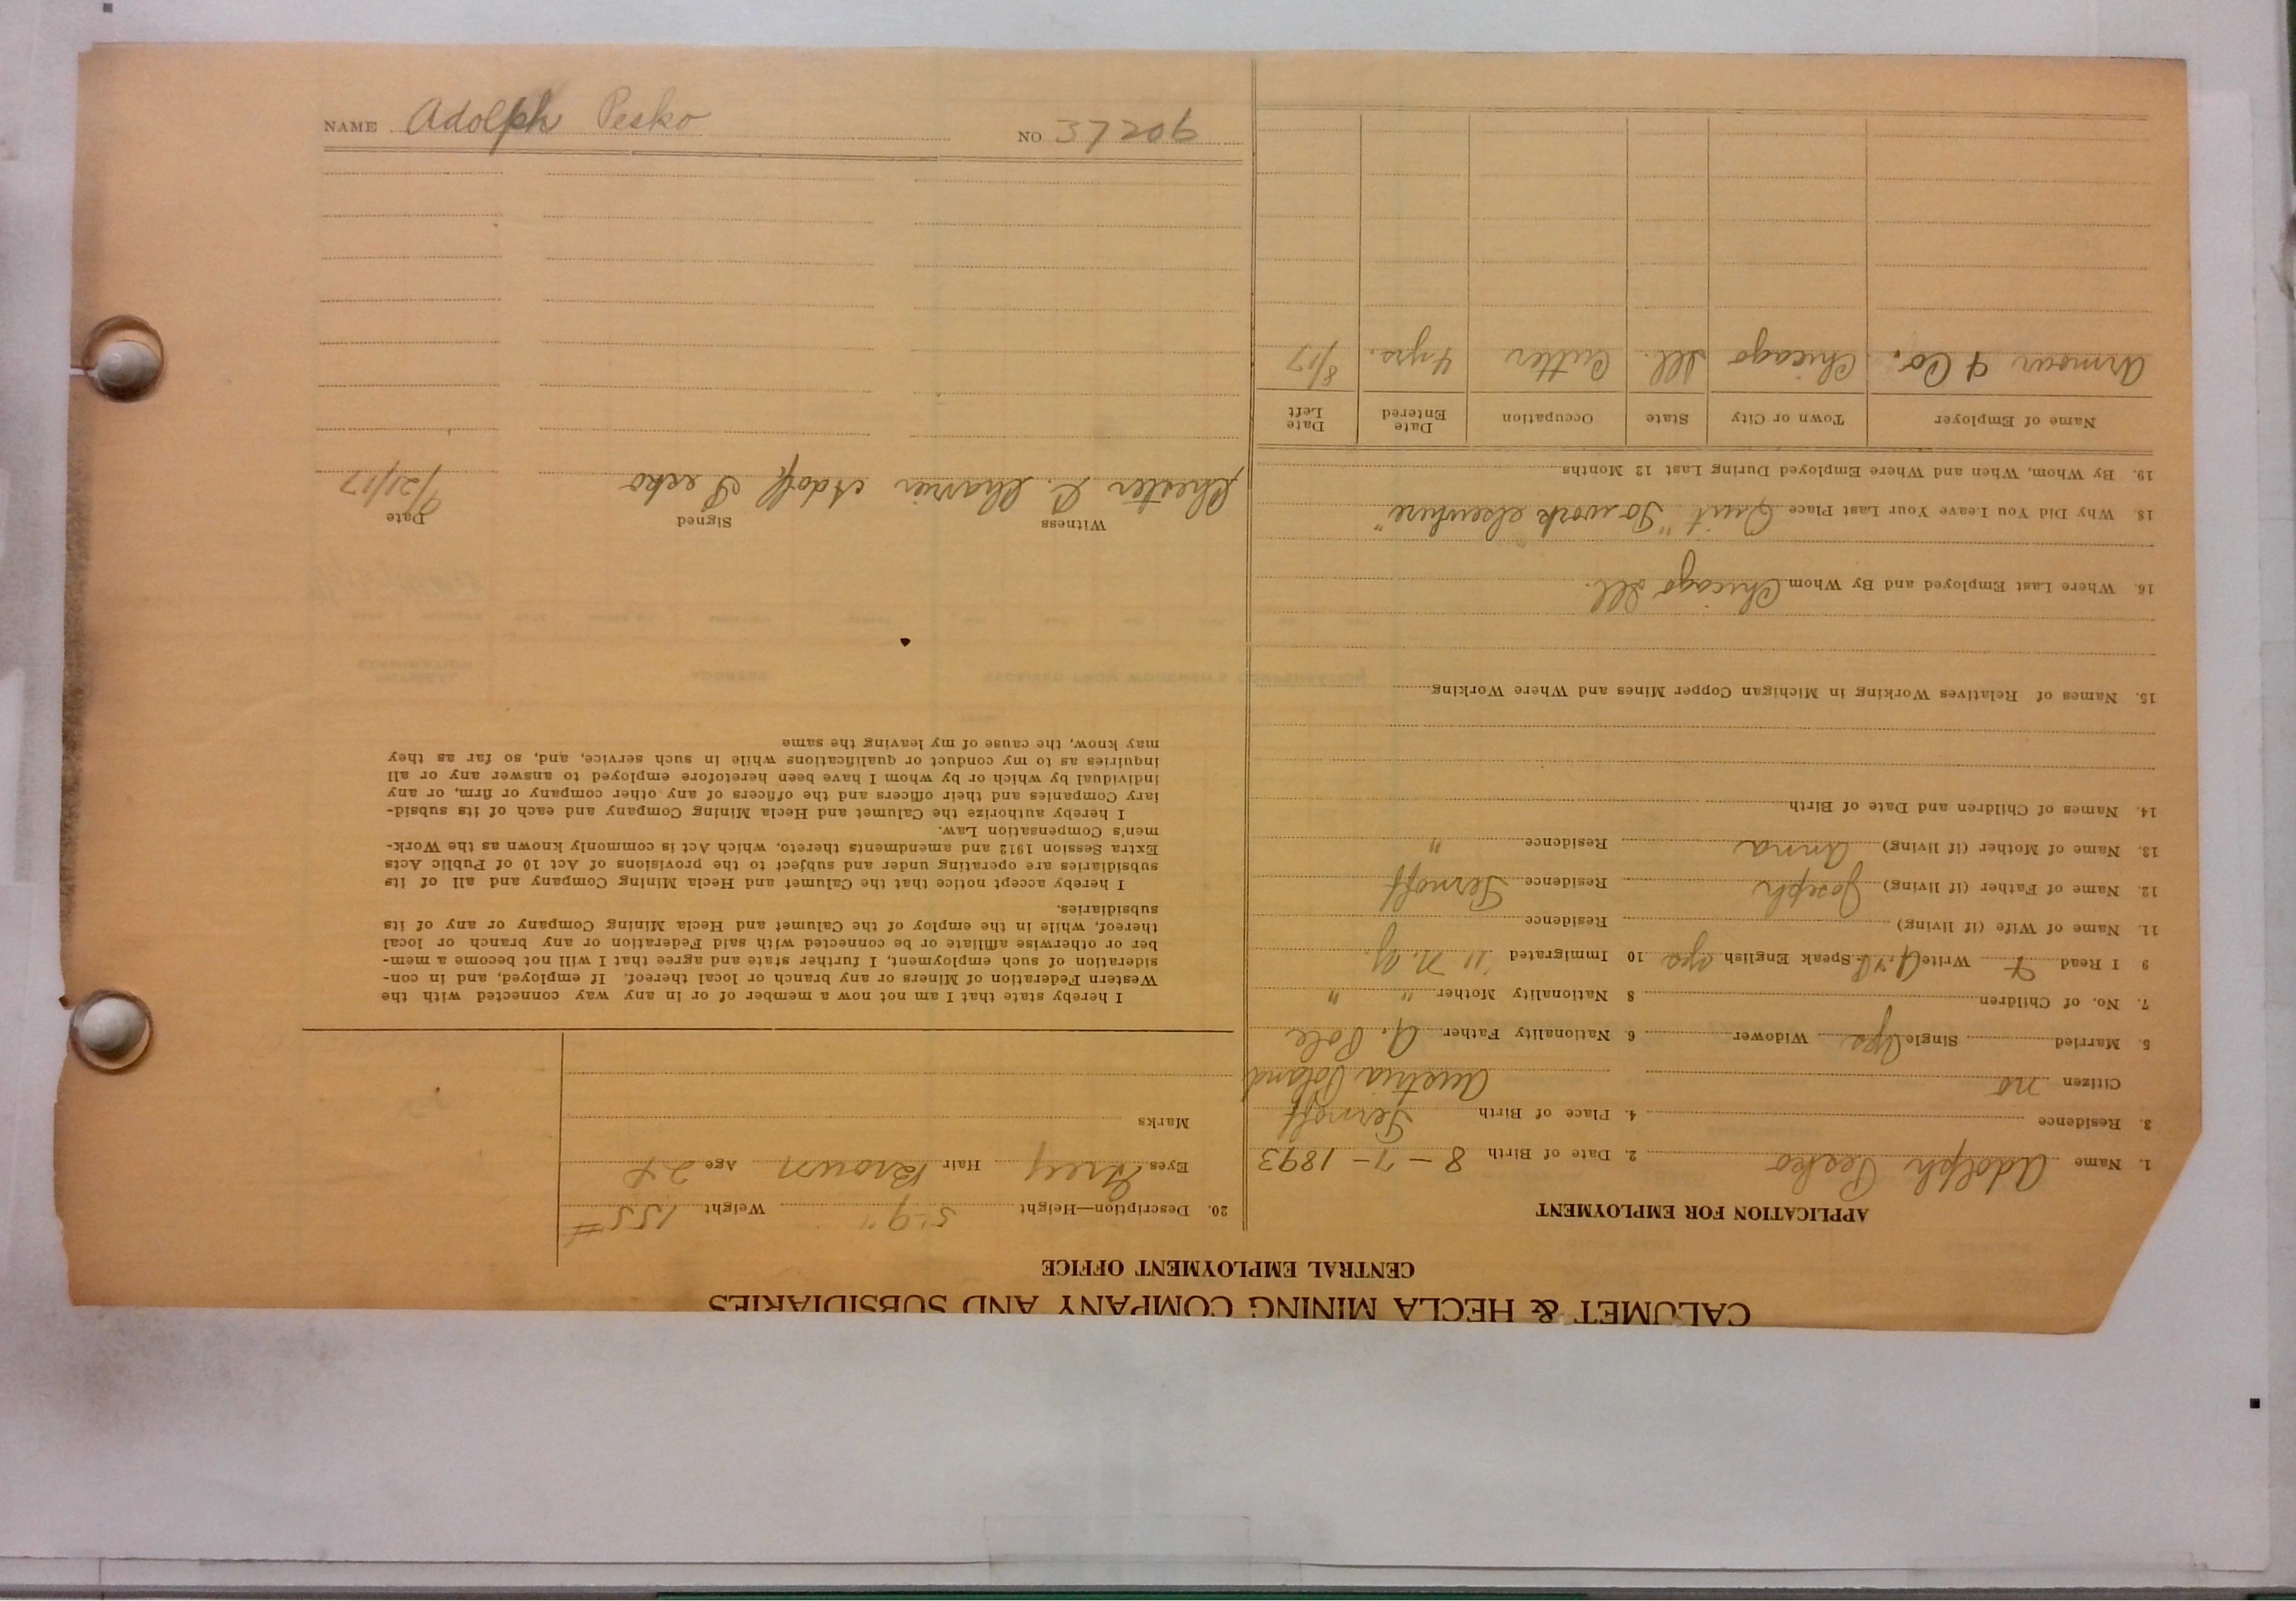 CALUMET & HECLA MINING COMPANY AND SUBSIDIARIES
CENTRAL EMPLOYMENT OFFICE
APPLICATION FOR EMPLOYMENT
1. Name Adolph Pesko 2. Date of Birth 8-7-1893
3. Residence 4. Place of Birth Ternoff
Citizen no Austria Poland
5. Married Single yes Widower 6 Nationality Father A. Pole
7. No. of Children 8 Nationality Mother " "
9 I Read Write Speak English yes 10 Immigrated '11 N.Y.
11. Name of Wife (if living) Residence
12. Name of Father (if living) Joseph Residence Ternoff
13. Name of Mother (if living) Anna Residence "
14. Names of Children and Date of Birth
15. Names of Relatives Working in Michigan Copper Mines and Where Working
16. Where Last Employed and By Whom Chicago Ill.
18. Why Did You Leave Your Last Place Quit "To work elsewhere"
19. By Whom, When and Where Employed During Last 12 Months
Name of Employer Town or City State Occupation Date Entered Date Left
Armour & Co. Chicago Ill. Cutter 4 yrs. 8/17
20. Description—Height 5-9" Weight 155#
Eyes Grey Hair Brown Age 24
Marks
I hereby state that I am not now a member of or in any way connected with the
Western Federation of Miners or any branch or local thereof. If employed, and in con-
sideration of such employment, I further state and agree that I will not become a mem-
ber or otherwise affiliate or be connected with said Federation or any branch or local
thereof, while in the employ of the Calumet and Hecla Mining Company or any of its
subsidiaries.
I hereby accept notice that the Calumet and Hecla Mining Company and all of its
subsidiaries are operating under and subject to the provisions of Act 10 of Public Acts
Extra Session 1912 and amendments thereto, which Act is commonly known as the Work-
men's Compensation Law.
I hereby authorize the Calumet and Hecla Mining Company and each of its subsid-
iary Companies and their officers and the officers of any other company or firm, or any
individual by which or by whom I have been heretofore employed to answer any or all
inquiries as to my conduct or qualifications while in such service, and, so far as they
may know, the cause of my leaving the same
Witness Signed Date
Chester C. Adolf Pesko 9/21/17
NAME Adolph Pesko NO 37206